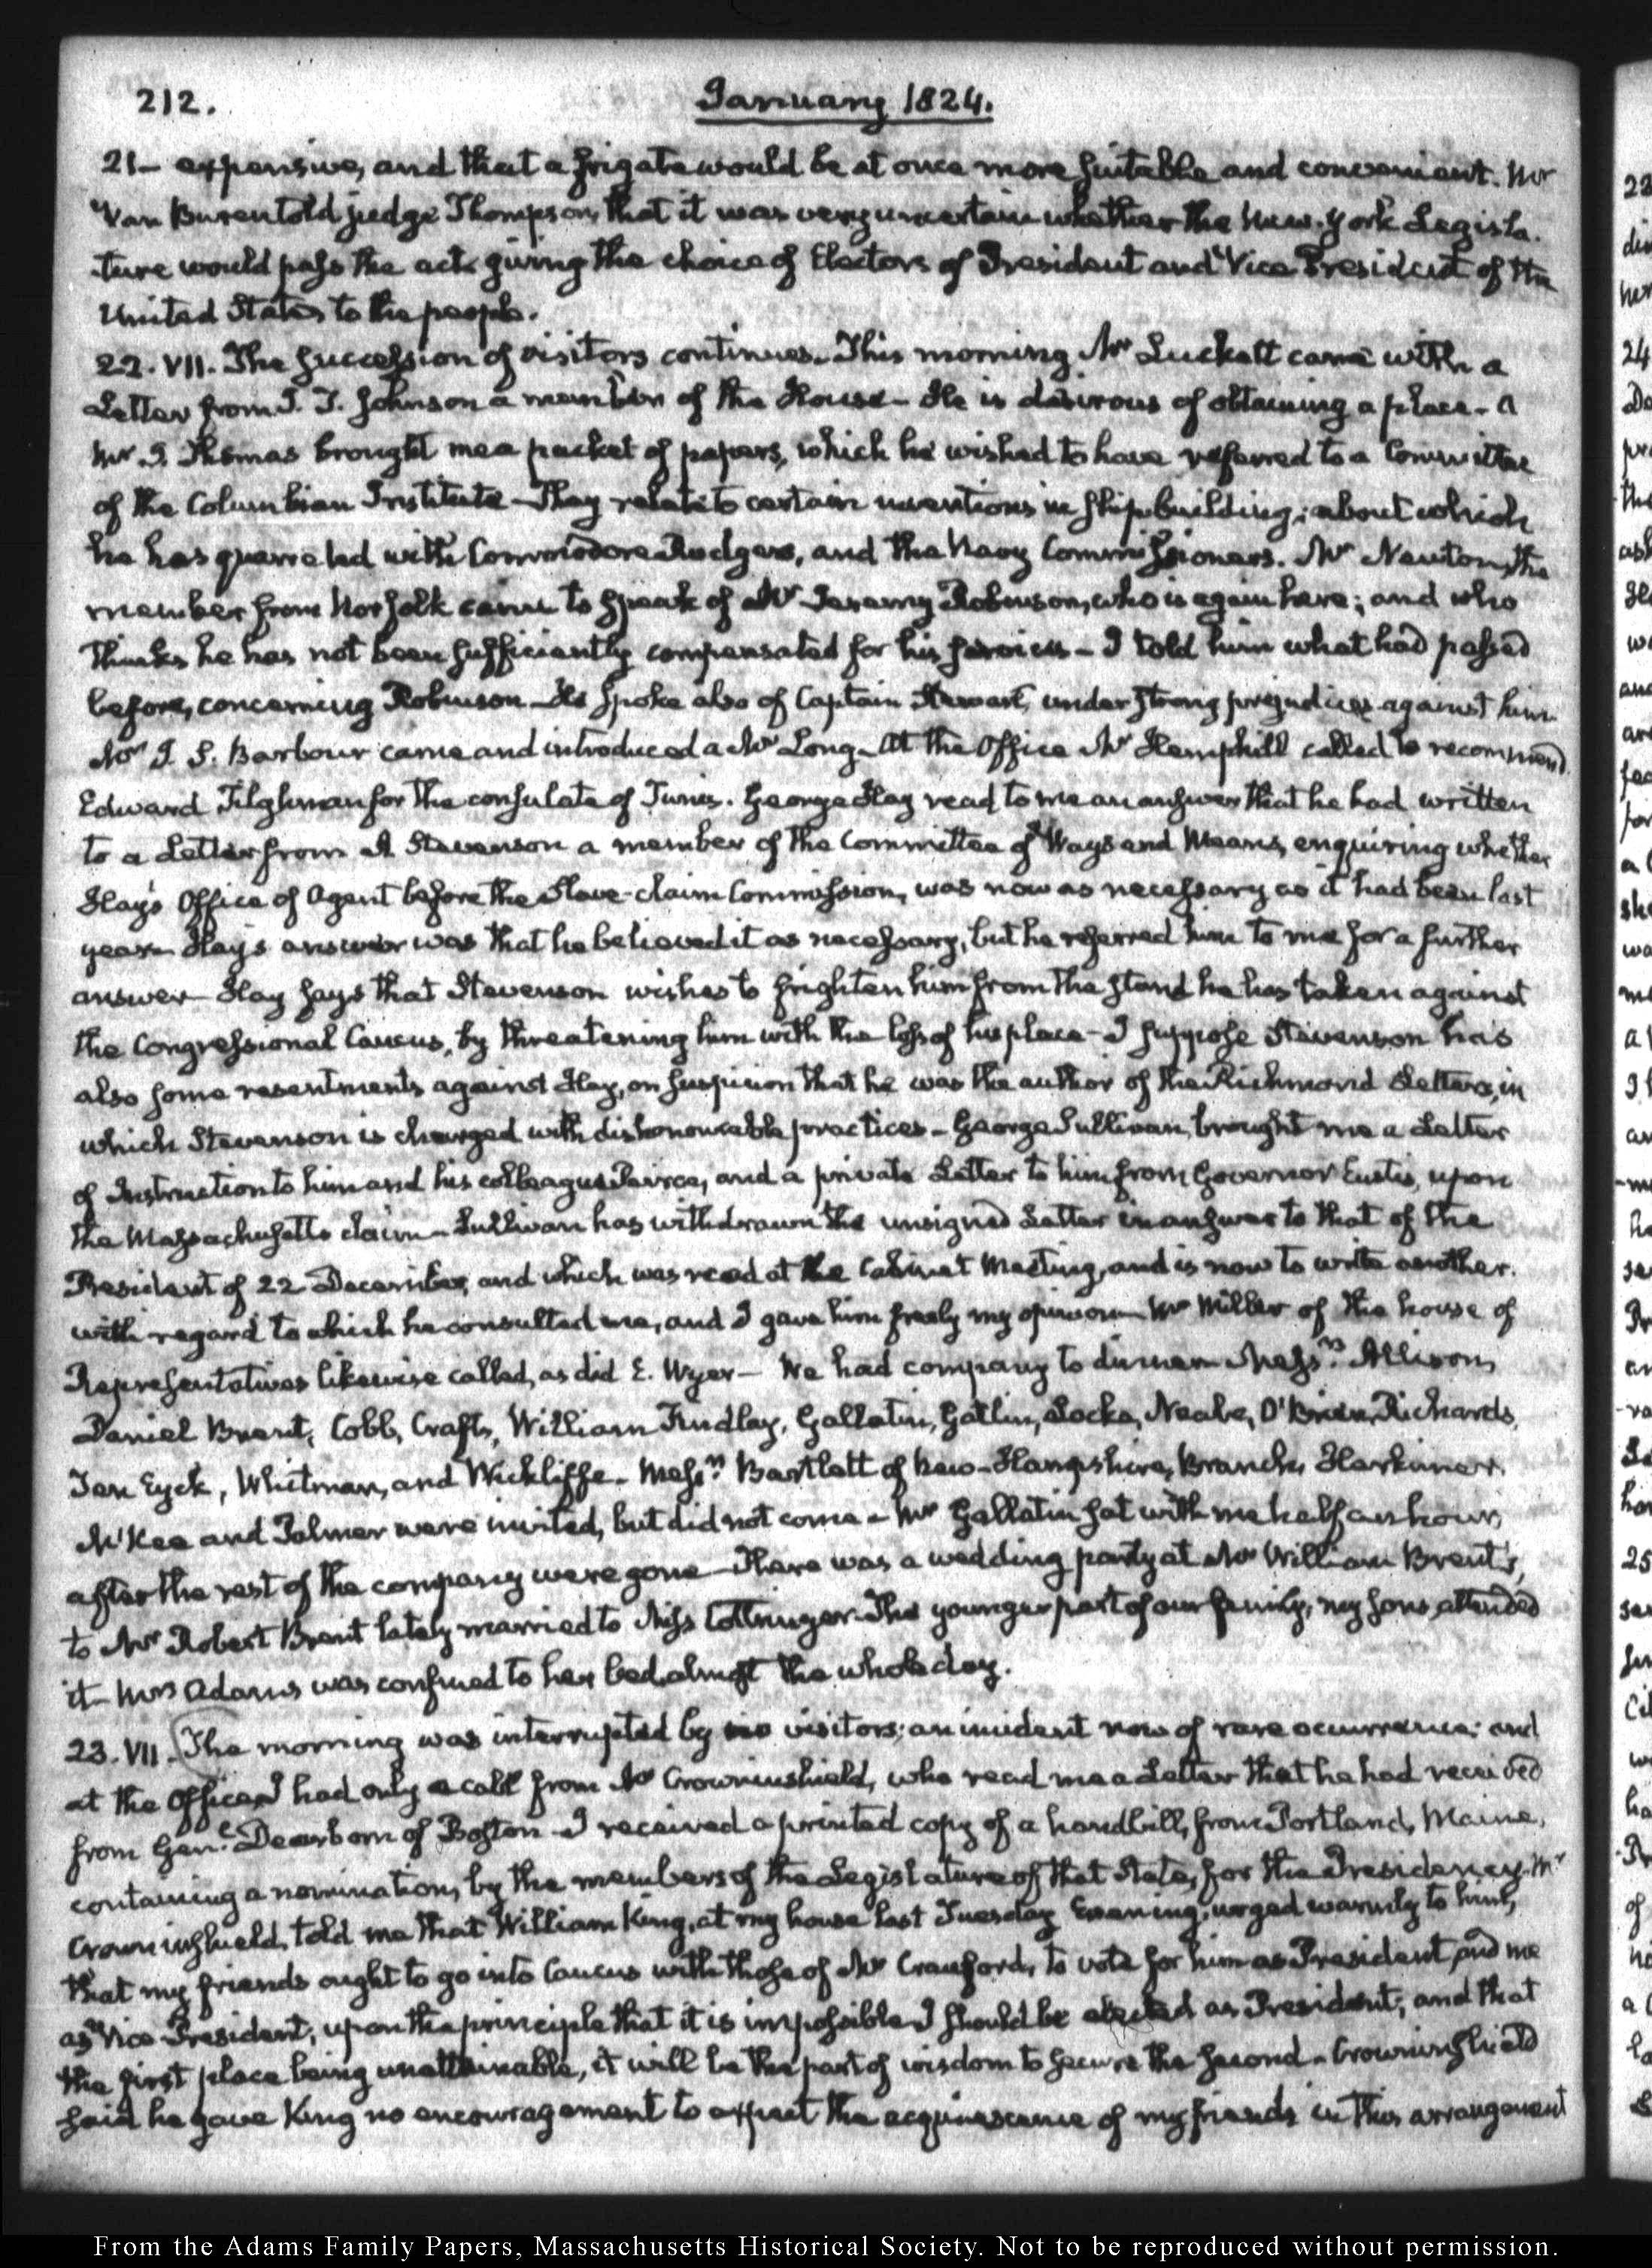 212.
January 1824.
21— expensive, and that a frigate would be at once more suitable and convenient. Mr
Van Buren told judge Thompson, that it was very uncertain whether the New-York Legisla-
ture would pass the act giving the choice of Electors of President and Vice President of the
United States to the people.
22. VII. The succession of visitors continues. This morning Mr Luckett came with a
Letter from J. T. Johnson a member of the House— He is desirous of obtaining a place— A
Mr I. Thomas brought me a packet of papers, which he wished to have referred to a Committee
of the Columbian Institute— They relate to certain inventions in ship building; about which
he has quarreled with Commodore Rodgers, and the Navy Commissioners. Mr Newton, the
member from Norfolk came to speak of Mr Jeremy Robinson, who is again here; and who
thinks he has not been sufficiently compensated for his services— I told him what had passed
before, concerning Robinson— He spoke also of Captain Stewart, under strong prejudices against him
Mr J. S. Barbour came and introduced a Mr Long— At the Office Mr Hemphill called to recommend
Edward Tilghman for the consulate of Tunis. George Hay read to me an answer that he had written
to a Letter from A Stevenson a member of the Committee of Ways and Means, enquiring whether
Hay's Office of Agent before the Slave-claim Commission, was now as necessary as it had been last
year— Hay's answer was that he believed it as necessary, but he referred him to me for a further
answer— Hay says that Stevenson wishes to frighten him from the stand he has taken against
the Congressional Caucus, by threatening him with the loss of his place— I suppose Stevenson has
also some resentments against Hay, on suspicion that he was the author of the Richmond Letters, in
which Stevenson is charged with dishonourable practices— George Sullivan, brought me a Letter
of Instruction to him and his colleague Peirce, and a private Letter to him from Governor Eustis, upon
the Massachusetts claim— Sullivan has withdrawn the unsigned Letter in answer to that of the
President of 22 December, and which was read at the Cabinet Meeting, and is now to write another.
with regard to which he consulted me, and I gave him freely my opinion— Mr Miller of the house of
Representatives likewise called, as did E. Wyer— We had company to dinner— Messrs Allison,
Daniel Brent, Cobb, Crafts, William Findlay, Gallatin, Gatlin, Locke, Neale, O'Brien, Richards,
Ten Eyck, Whitman, and Wickliffe— Messrs Bartlett of New-Hampshire, Branch, Herkimer,
McKee and Palmer were invited, but did not come— Mr Gallatin sat with me half an hour,
after the rest of the company were gone— There was a wedding party at Mr William Brent's,
to Mr Robert Brent lately married to Miss Cottringer— The younger part of our family, my sons attended
it— Mrs Adams was confined to her bed almost the whole day.
23. VII. The morning was interrupted by no visitors; an incident now of rare occurrence: and
at the Office I had only a call from Mr Crowninshield, who read me a Letter that he had received
from Genl. Dearborn of Boston— I received a printed copy of a handbill, from Portland, Maine,
containing a nomination, by the members of the Legislature of that State, for the Presidency— Mr
Crowninshield, told me that William King, at my house last Tuesday Evening, urged warmly to him,
that my friends ought to go into Caucus with those of Mr Crawford, to vote for him as President, and me
as Vice President; upon the principle that it is impossible I should be elected as President; and that
the first place being unattainable, it will be the part of wisdom to secure the second— Crowninshield
said he gave King no encouragement to expect the acquiescence of my friends in this arrangement
From the Adams Family Papers, Massachusetts Historical Society. Not to be reproduced without permission.